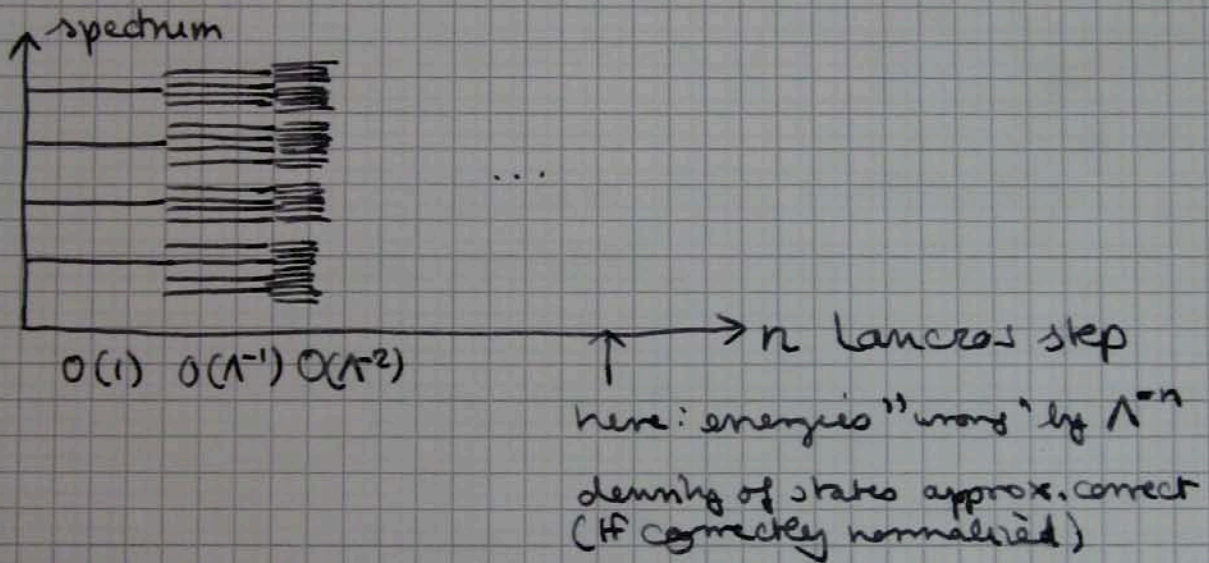 spectrum
...
n Lanczos step
O(1) O(Λ⁻¹) O(Λ⁻²)
here: energies "wrong" by Λ⁻ⁿ
density of states approx. correct
(if correctly normalized)